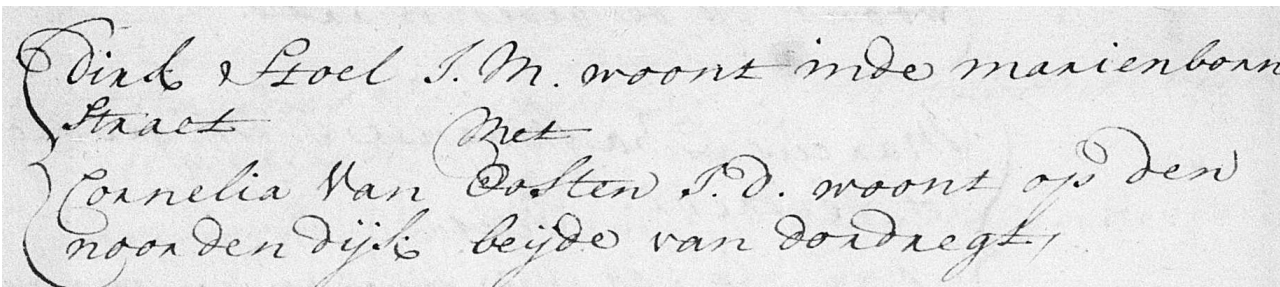 Dirk Stoel J. M. woont inde marienborn
Straet Met
Cornelia Van Oosten J. d. woont op den
noordendijk beijde van dordregt,